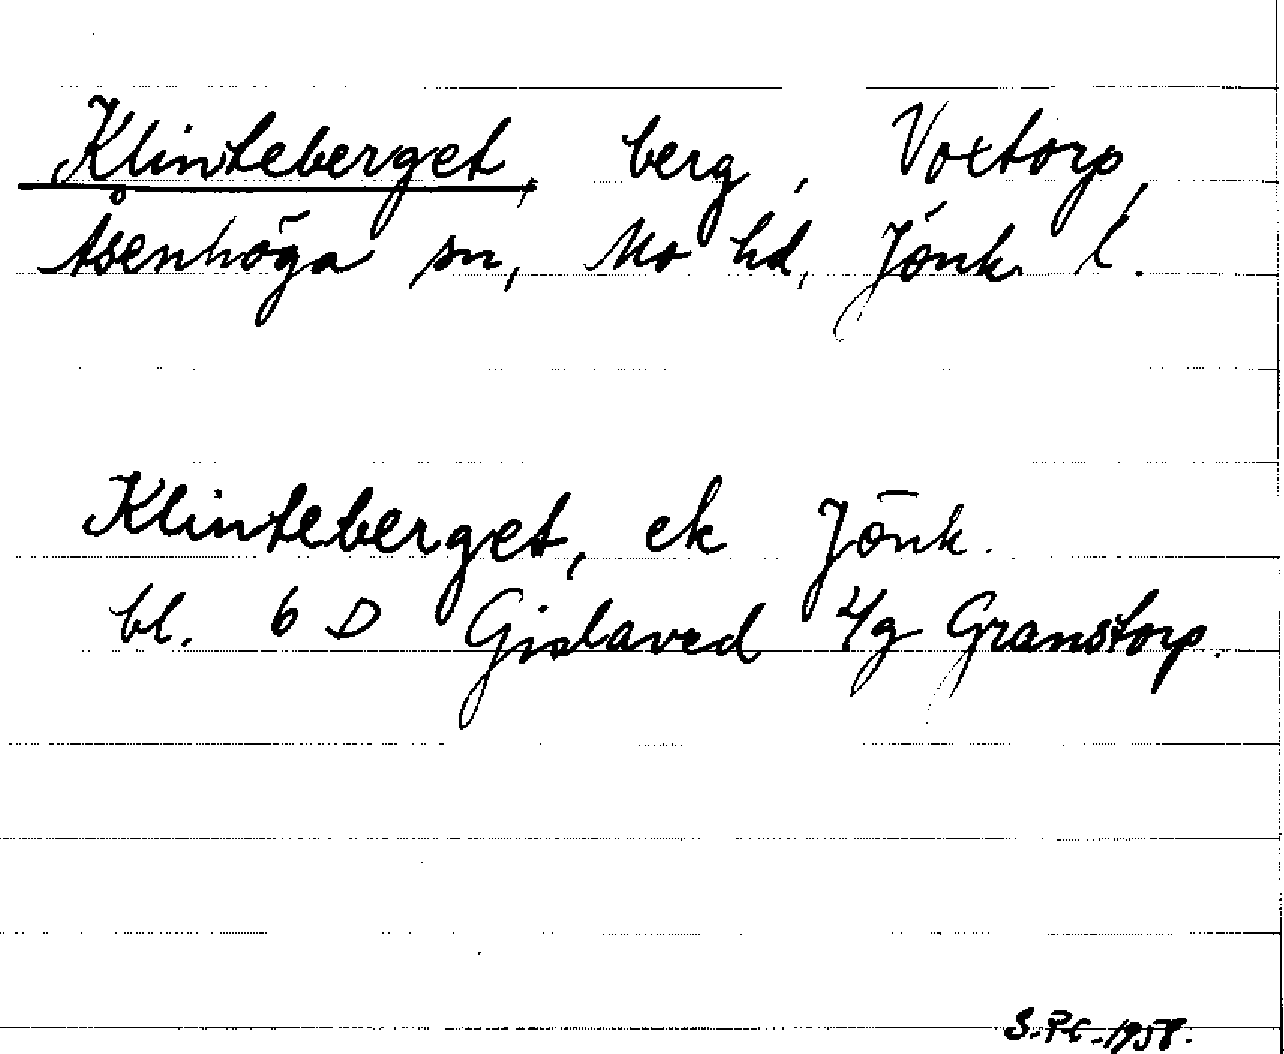 Klinteberget, berg, Voxtorp,
Åsenhöga sn, Mo hd, Jönk. l.
Klinteberget, ek Jönk.
bl. 6 D Gislaved 4/g Granstorp.
S.-P.C.-1958.